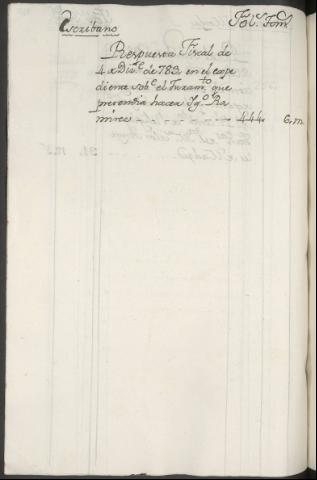 Escribano Fol. Tom.
Respuesta Fiscal de
4 xbre. de 783. en el expe
diente sobe. el Juramto. que
pretendia hacer Ygo. Ra
mirez 444. 6,,m